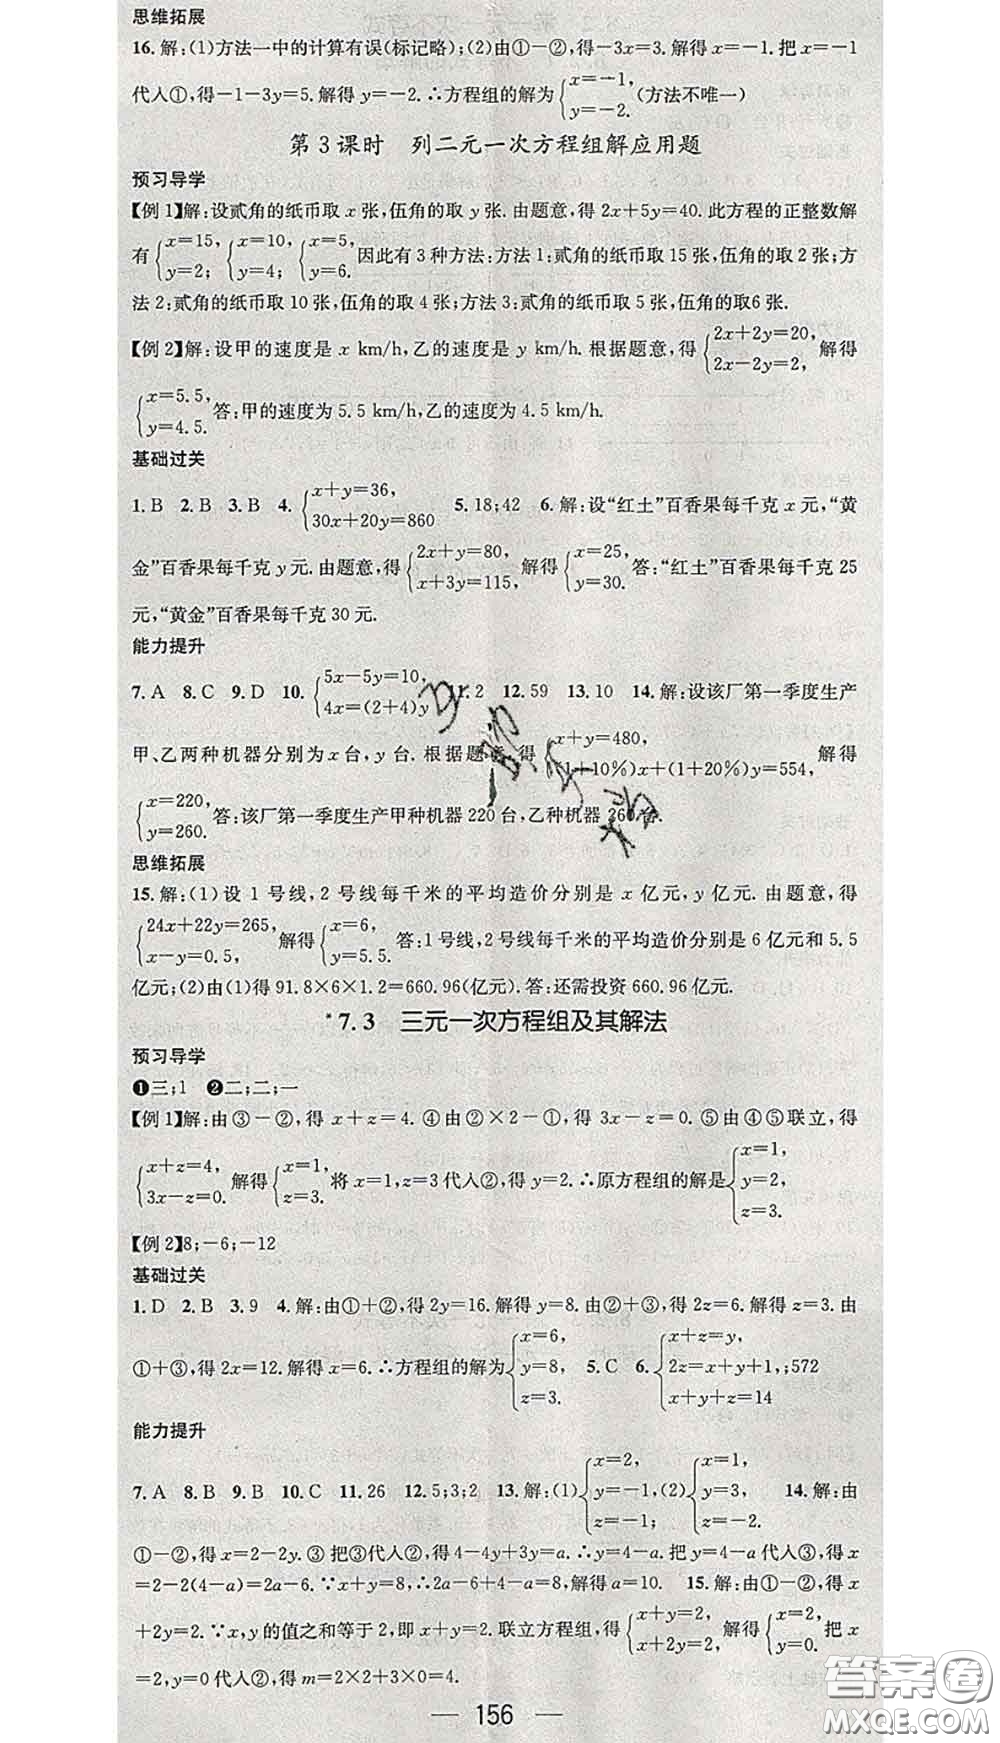 思维拓展
16.解:(1)方法一中的计算有误(标记略);(2)由①-②,得-3x=3.解得x=-1.把x=-1
代人①,得-1-3y=5.解得y=-2.∴方程组的解为{x=-1, y=-2.(方法不唯一)
第3课时 列二元一次方程组解应用题
预习导学
【例1】解:设贰角的纸币取x张,伍角的取y张.由题意,得2x+5y=40.此方程的正整数解
有{x=15, y=2; {x=10, y=4; {x=5, y=6.因此有3种方法:方法1:贰角的纸币取15张,伍角的取2张;方
法2:贰角的纸币取10张,伍角的取4张;方法3:贰角的纸币取5张,伍角的取6张.
【例2】解:设甲的速度是x km/h,乙的速度是y km/h.根据题意,得{2x+2y=20, 2x-2y=2,解得
{x=5.5, y=4.5.答:甲的速度为5.5 km/h,乙的速度为4.5 km/h.
基础过关
1.B 2.B 3.B 4.{x+y=36, 30x+20y=860 5.18;42 6.解:设“红土”百香果每千克x元,“黄
金”百香果每千克y元.由题意,得{2x+y=80, x+3y=115,解得{x=25, y=30.答:“红土”百香果每千克25
元,“黄金”百香果每千克30元.
能力提升
7.A 8.C 9.D 10.{5x-5y=10, 4x=(2+4)y 11.2 12.59 13.10 14.解:设该厂第一季度生产
甲、乙两种机器分别为x台,y台.根据题意,得{x+y=480, (1+10%)x+(1+20%)y=554,解得
{x=220, y=260.答:该厂第一季度生产甲种机器220台,乙种机器260台.
思维拓展
15.解:(1)设1号线,2号线每千米的平均造价分别是x亿元,y亿元.由题意,得
{24x+22y=265, x-y=0.5,解得{x=6, y=5.5.答:1号线,2号线每千米的平均造价分别是6亿元和5.5
亿元;(2)由(1)得91.8×6×1.2=660.96(亿元).答:还需投资660.96亿元.
*7.3 三元一次方程组及其解法
预习导学
❶三;1 ❷二;二;一
【例1】解:由③-②,得x+z=4.④由②×2-①,得3x-z=0.⑤由④⑤联立,得
{x+z=4, 3x-z=0.解得{x=1, z=3.将x=1,z=3代人②,得y=2.∴原方程组的解是{x=1, y=2, z=3.
【例2】8;-6;-12
基础过关
1.D 2.B 3.9 4.解:由①+②,得2y=16.解得y=8.由②+③,得2z=6.解得z=3.由
①+③,得2x=12.解得x=6.∴方程组的解为{x=6, y=8, z=3. 5.C 6.{x+z=y, 2z=x+y+1, x+y+z=14;572
能力提升
7.A 8.B 9.B 10.C 11.26 12.5;3;2 13.解:(1){x=2, y=-1, z=-1;(2){x=1, y=3, z=-2. 14.解:由
①-②,得x=2-2y.③把③代人②,得4-4y+3y=a.∴y=4-a.把y=4-a代人③,得x
=2-2(4-a)=2a-6.∵x+y=8,∴2a-6+4-a=8,解得a=10. 15.解:由①-②,得x
+2y=2.∵x,y的值之和等于2,即x+y=2.联立方程组,得{x+y=2, x+2y=2,解得{x=2, y=0.把x
=2,y=0代人②,得m=2×2+3×0=4.
156
答案圈
MXQE.COM